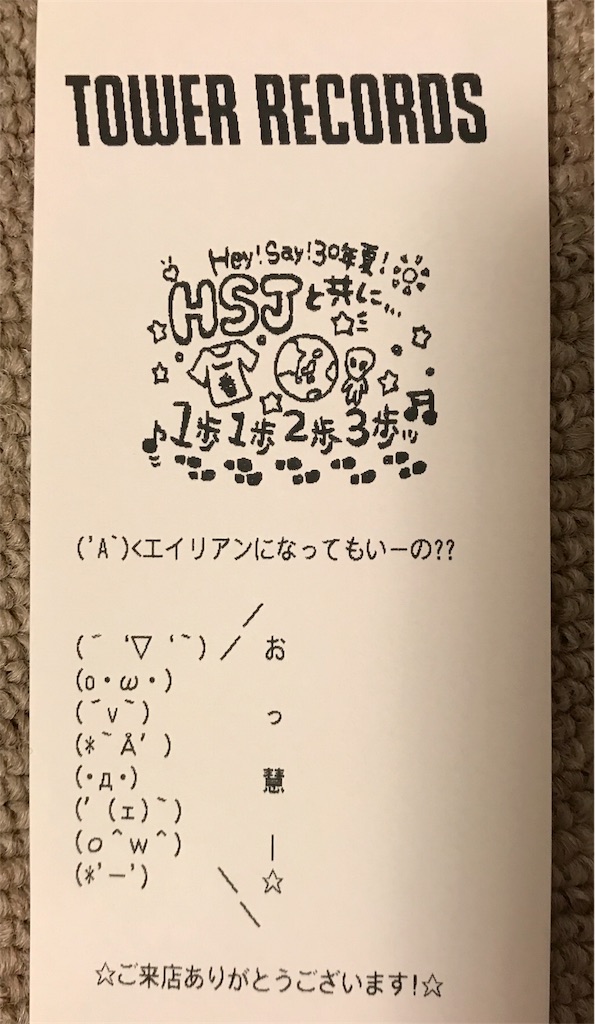 TOWER RECORDS
Hey!Say!30年夏!
HSJと共に...
1歩1歩2歩3歩
('A`)<エイリアンになってもいーの??
／
(´ ‘▽ ‘｀)／ お
(o・ω・)
(´v｀) っ
(*｀Å’)
(・д・) 慧
(’(ェ)｀)
(o＾w＾) ｜
(*'－') ＼ ☆
＼
☆ご来店ありがとうございます!☆